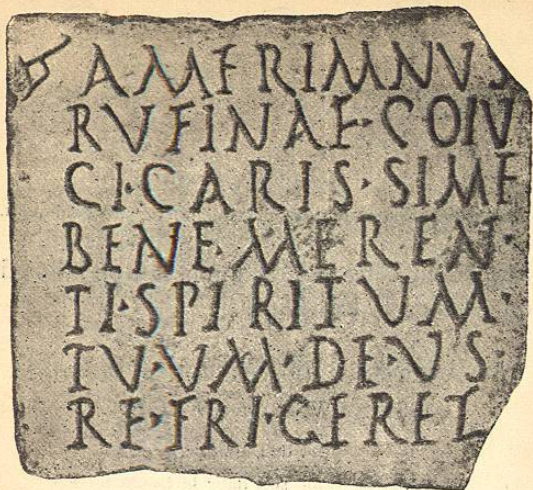 A·MERIMNVS
RVFINAE·COIV
CI·CARIS·SIME
BENE·MEREN·
TI·SPIRITVM·
TV·VM·DE·VS·
RE·FRI·GERET